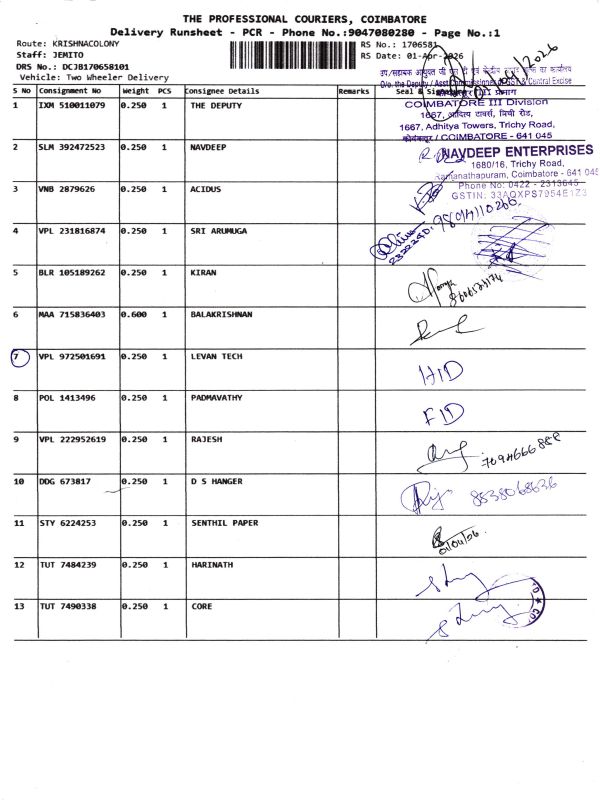 THE PROFESSIONAL COURIERS, COIMBATORE
Delivery Runsheet - PCR - Phone No.:9047080280 - Page No.:1
Route: KRISHNACOLONY
Staff: JEMITO
DRS No.: DCJB170658101
Vehicle: Two Wheeler Delivery
RS No.: 1706581
RS Date: 01-Apr-2026
01/04/2026
S No Consignment No Weight PCS Consignee Details Remarks Seal &
1 IXM 510011079 0.250 1 THE DEPUTY
COIMBATORE III Division
1667, आदित्य टावर्स, त्रिची रोड,
1667, Adhitya Towers, Trichy Road,
कोयंबत्तूर / COIMBATORE - 641 045
2 SLM 392472523 0.250 1 NAVDEEP
NAVDEEP ENTERPRISES
1680/16, Trichy Road,
Ramanathapuram, Coimbatore - 641 045
Phone No: 0422 - 2313645
GSTIN: 33AQXPS7954E1Z3
3 VNB 2879626 0.250 1 ACIDUS
4 VPL 231816874 0.250 1 SRI ARUMUGA
5 BLR 105189262 0.250 1 KIRAN
6 MAA 715836403 0.600 1 BALAKRISHNAN
7 VPL 972501691 0.250 1 LEVAN TECH HID
8 POL 1413496 0.250 1 PADMAVATHY FID
9 VPL 222952619 0.250 1 RAJESH 7094666888
10 DDG 673817 0.250 1 D S HANGER 8838068636
11 STY 6224253 0.250 1 SENTHIL PAPER 01/04/26.
12 TUT 7484239 0.250 1 HARINATH
13 TUT 7490338 0.250 1 CORE